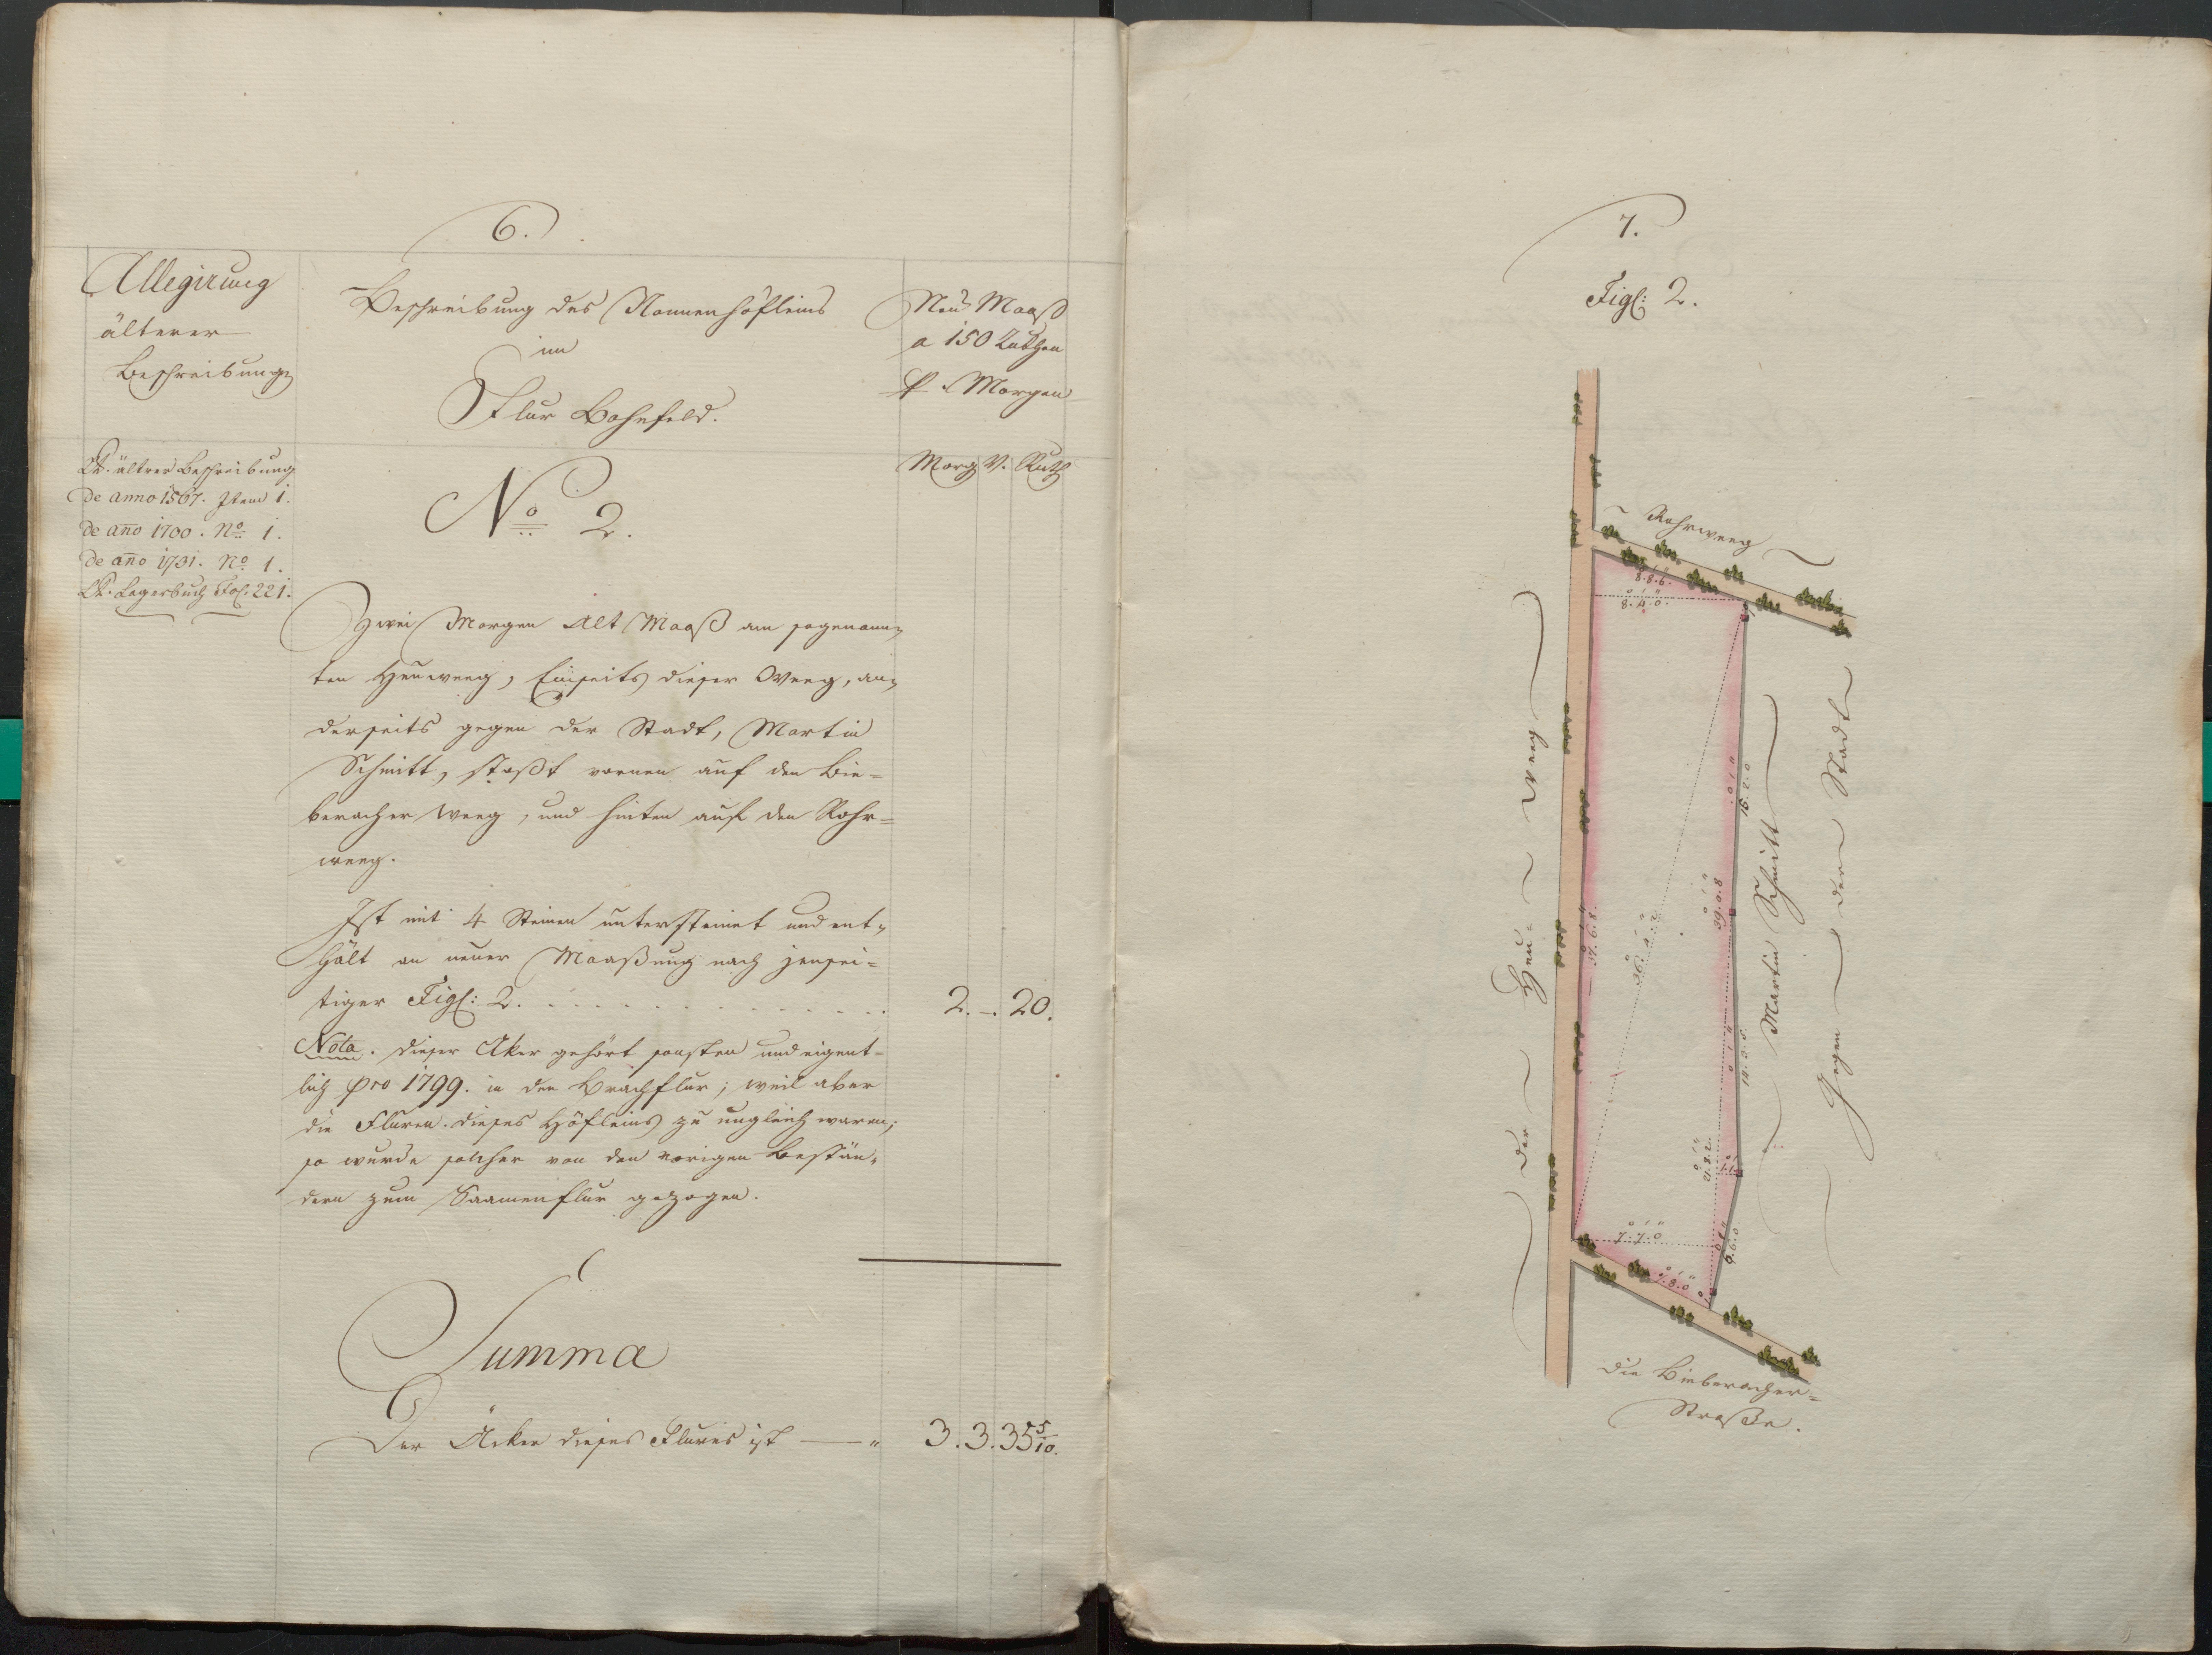 6.
Allegirung
älterer
Beschreibung
Beschreibung des Nonnenhöfleins
im
Flur Bohnfeld.
Neu Maaß
a 150 Ruthen
p. Morgen
Morg. V. Ruth
Lt. älterer Beschreibung
de anno 1567. Item 1.
de año 1700. No. 1.
de año 1731. No. 1.
Lt. Lagerbuch Fol. 221.
No. 2.
Zwei Morgen Alt Maaß am sogenann-
ten Heuweeg, Einseits dieser Weeg, an-
derseits gegen der Stadt, Martin
Schmitt, stoßt vornen auf den Bie-
beracher Weeg, und hinten auf den Rohr-
weeg.
Ist mit 4 Steinen untersteinet und ent-
hält an neuer Maaßung nach jensei-
tiger Figl: 2. 2. -. 20.
Nota. dieser Aker gehört sonsten und eigent-
lich pro 1799. in der Brachflur; weil aber
die Fluren dieses Höfleins zu ungleich waren,
so wurde solcher von den vorigen Bestän-
dern zum Saamenflur gezogen.
Summa
Der Äcker dieses Flures ist 3. 3. 35 5/10.
7.
Figl: 2.
Rohrweeg
8.8.6.
8.4.0.
15.2.0
39.0.8
37.6.8.
36.4.2
14.3.5.
21.3.2.
1.1.
7.7.0
9.6.0
7.8.0
der Heu-Weeg
Martin Schmitt
Gegen der Stadt
die Bieberacher-
Straße.